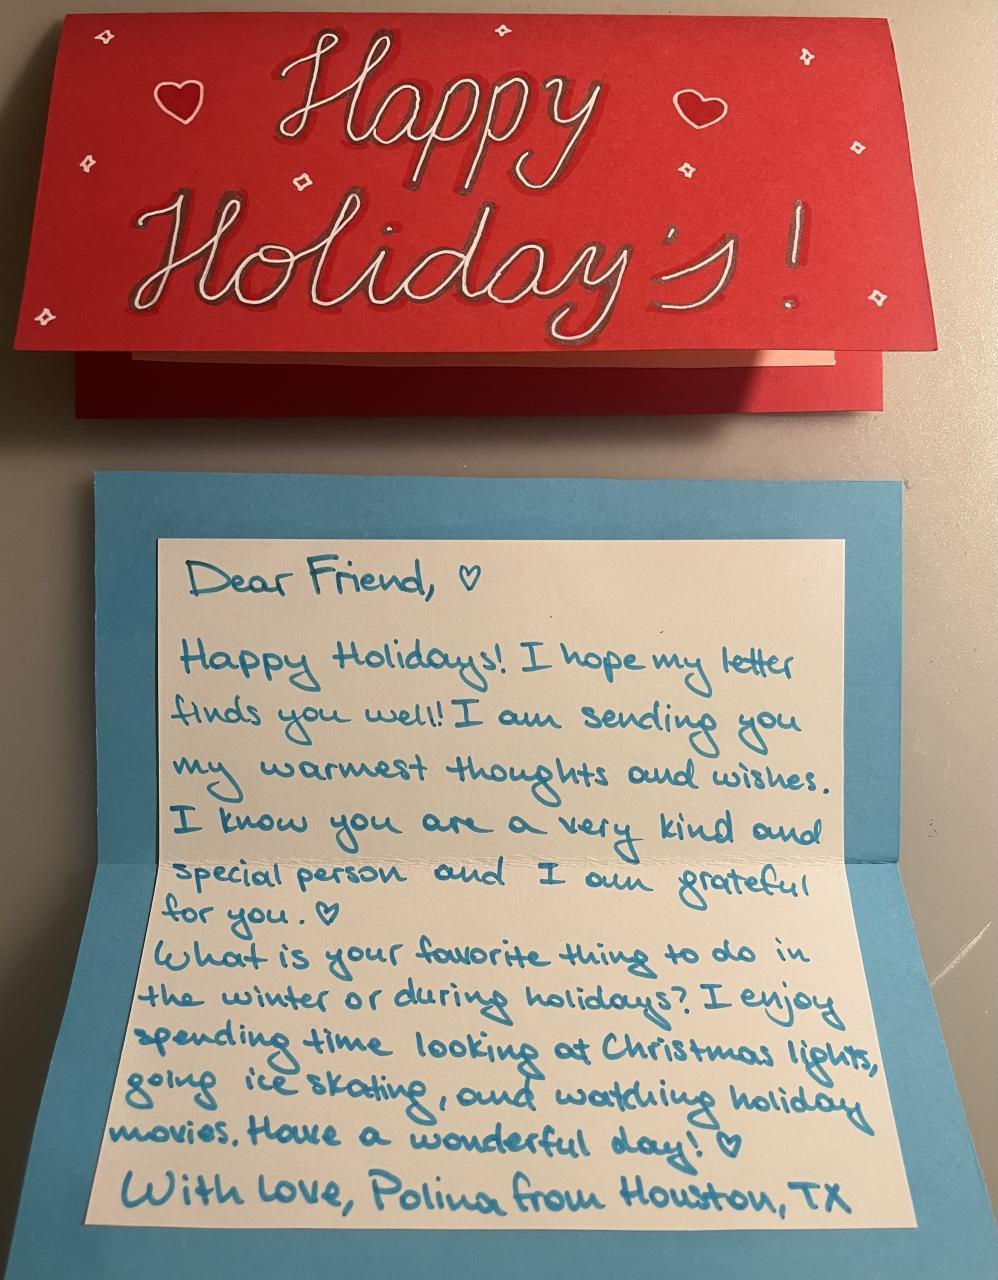 Happy
Holiday's!
Dear Friend, ♡
Happy Holidays! I hope my letter
finds you well! I am sending you
my warmest thoughts and wishes.
I know you are a very kind and
special person and I am grateful
for you. ♡
What is your favorite thing to do in
the winter or during holidays? I enjoy
spending time looking at Christmas lights,
going ice skating, and watching holiday
movies. Have a wonderful day! ♡
With Love, Polina from Houston, TX